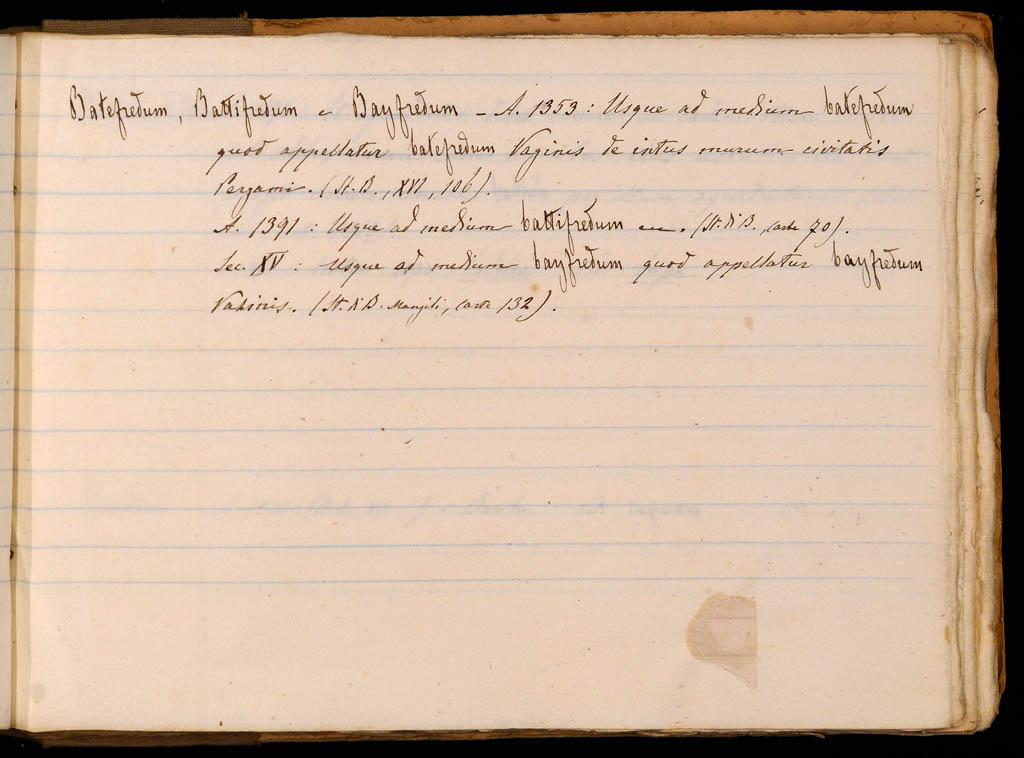 Batefredum, Battifredum e Bayfredum – A. 1353: Usque ad medium batefredum
quod appellatur batefredum Vaginis de intus murum civitatis
Pergami. (St. B., XVI, 106).
A. 1391: Usque ad medium battifredum ecc. (St. di B., carte 70).
Sec. XV: Usque ad medium bayfredum quod appellatur bayfredum
Vahinis. (St. di B. Mangili, carte 132).